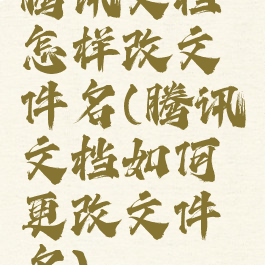 腾讯文档
怎样改文
件名(腾讯
文档如何
更改文件
名)